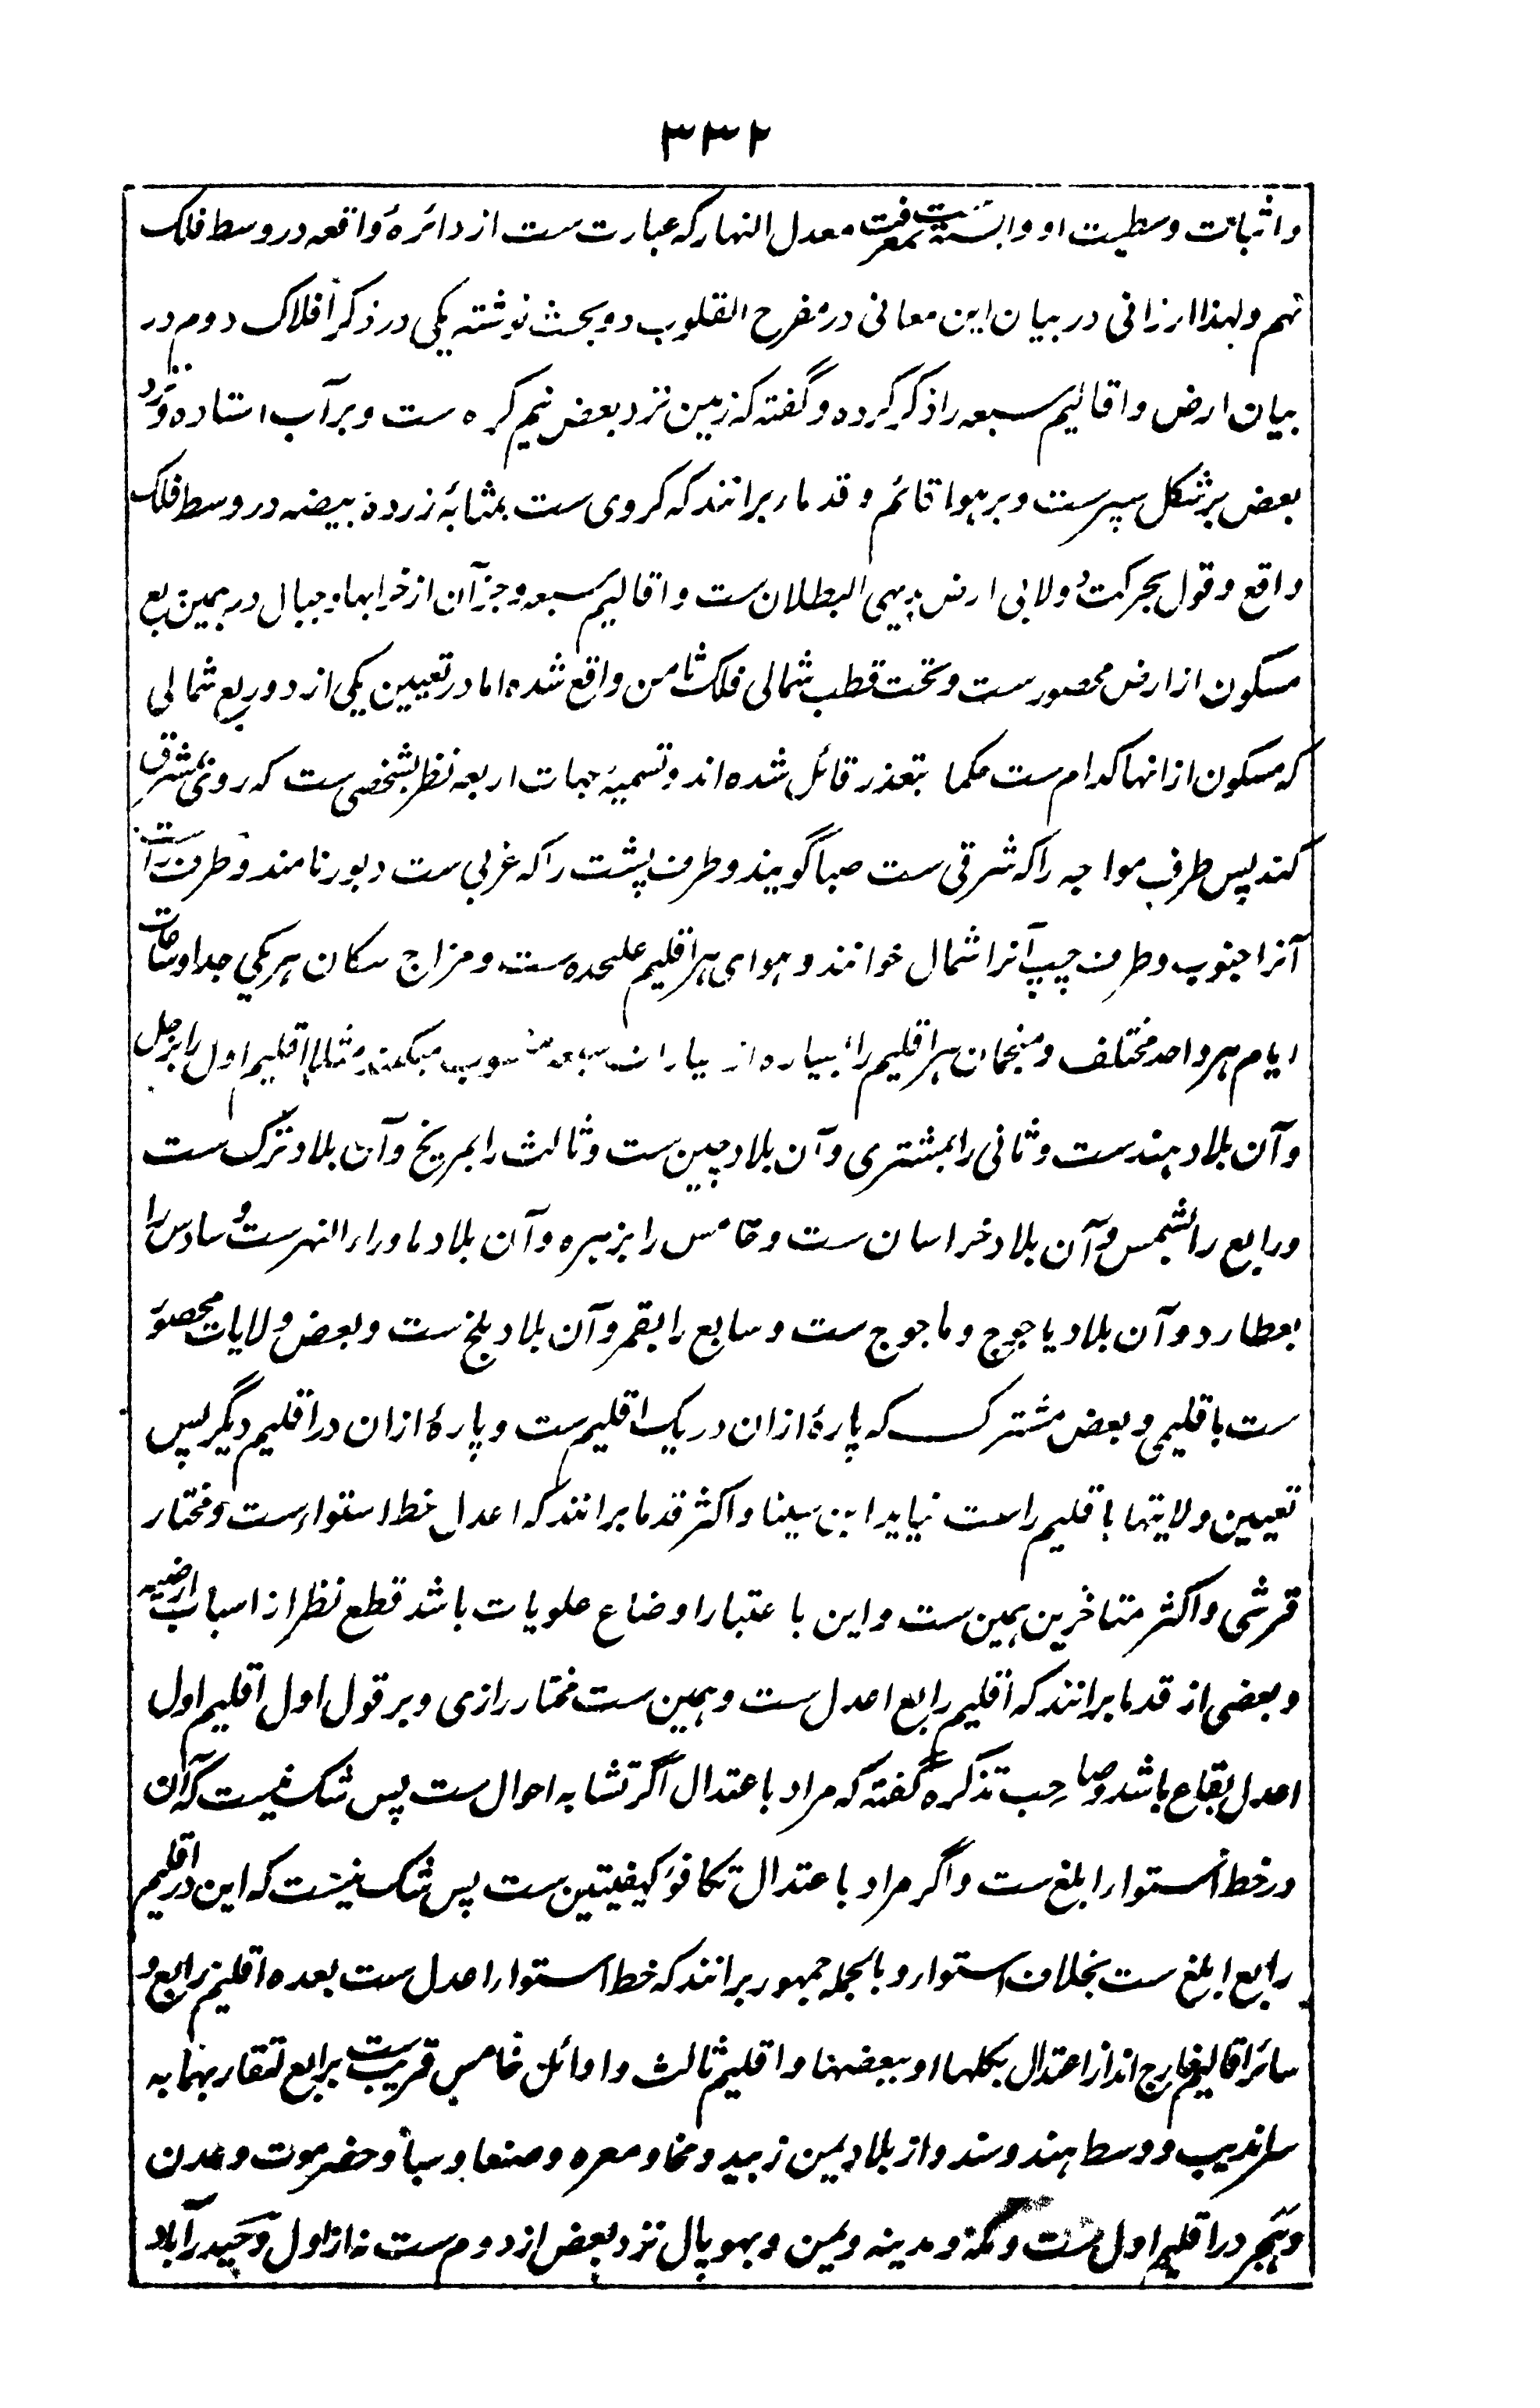 ۳۳۲
واثبات وسطیت او وابسته بمعرفت معدل النهار که عبارت ست از دائرۀ واقعه در وسط فلک
نهم ولهذا ارزانی در بیان این معانی در مفرح القلوب دو بحث نوشته یکی در ذکر افلاک دوم در
بیان ارض و اقالیم سبعه را ذکر کرده و گفته که زمین نزد بعض نیم کره ست و بر آب استاده و نزد
بعض بر شکل سپرست و بر هوا قائم و قدماء برانند که کروی ست بمثابۀ زردۀ بیضه در وسط فلک
واقع و قول بحرکت دولابی ارض بدیهی البطلان ست و اقالیم سبعه و جز آن از خرابها و جبال در همین ربع
مسکون از ارض محصورست و تحت قطب شمالی فلک ثامن واقع شده اما در تعیین یکی از دو ربع شمالی
که مسکون ازانها کدام ست حکما بتعذر قائل شده اند و تسمیۀ جهات اربعه نظر بشخصی ست که روی بمشرق
کند پس طرف مواجه را که شرقی ست صبا گویند و طرف پشت را که غربی ست دبور نامند و طرف راست
آنرا جنوب و طرف چپ آنرا شمال خوانند و هوای هر اقلیم علیحده ست و مزاج سکان هر یکی جدا و ساعات
ایام هر واحد مختلف و منجمان هر اقلیم را بسیاره از سیارات سبعه منسوب میکنند مثلا اقلیم اول را بزحل
و آن بلاد هندست و ثانی را بمشتری و آن بلاد چین ست و ثالث را بمریخ و آن بلاد ترک ست
و رابع را بشمس و آن بلاد خراسان ست و خامس را بزهره و آن بلاد ماوراء النهرست و سادس را
بعطارد و آن بلاد یاجوج و ماجوج ست و سابع را بقمر و آن بلاد بلخ ست و بعض ولایات محصور
ست باقلیمی و بعض مشترک که پارۀ ازان در یک اقلیم ست و پارۀ ازان در اقلیم دیگر پس
تعیین ولایتها باقلیم راست نیاید ابن سینا و اکثر قدما برانند که اعدل خط استواء ست و مختار
قرشی و اکثر متاخرین همین ست و این باعتبار اوضاع علویات باشد قطع نظر از اسباب ارضیه
و بعضی از قدما برانند که اقلیم رابع اعدل ست و همین ست مختار رازی و بر قول اول اقلیم اول
اعدل بقاع باشد و صاحب تذکره گفته که مراد باعتدال اگر تشابه احوال ست پس شک نیست که آن
در خط استوار ابلغ ست و اگر مراد باعتدال تکافؤ کیفیتین ست پس شک نیست که این در اقلیم
رابع ابلغ ست بخلاف استوار و بالجمله جمهور برانند که خط استوار اعدل ست بعده اقلیم رابع و
سائر اقالیم خارج اند از اعتدال بکلها او ببعضها و اقلیم ثالث و اوائل خامس قریب ست برابع لتقاربهما به
سراندیب و وسط هند و سند و از بلاد یمن زبید و مخا و معره و صنعا و سبا و حضرموت و عدن
و هجر در اقلیم اول ست و مکه و مدینه و یمن و بهوپال نزد بعض از دوم ست نه از اول و حیدرآباد